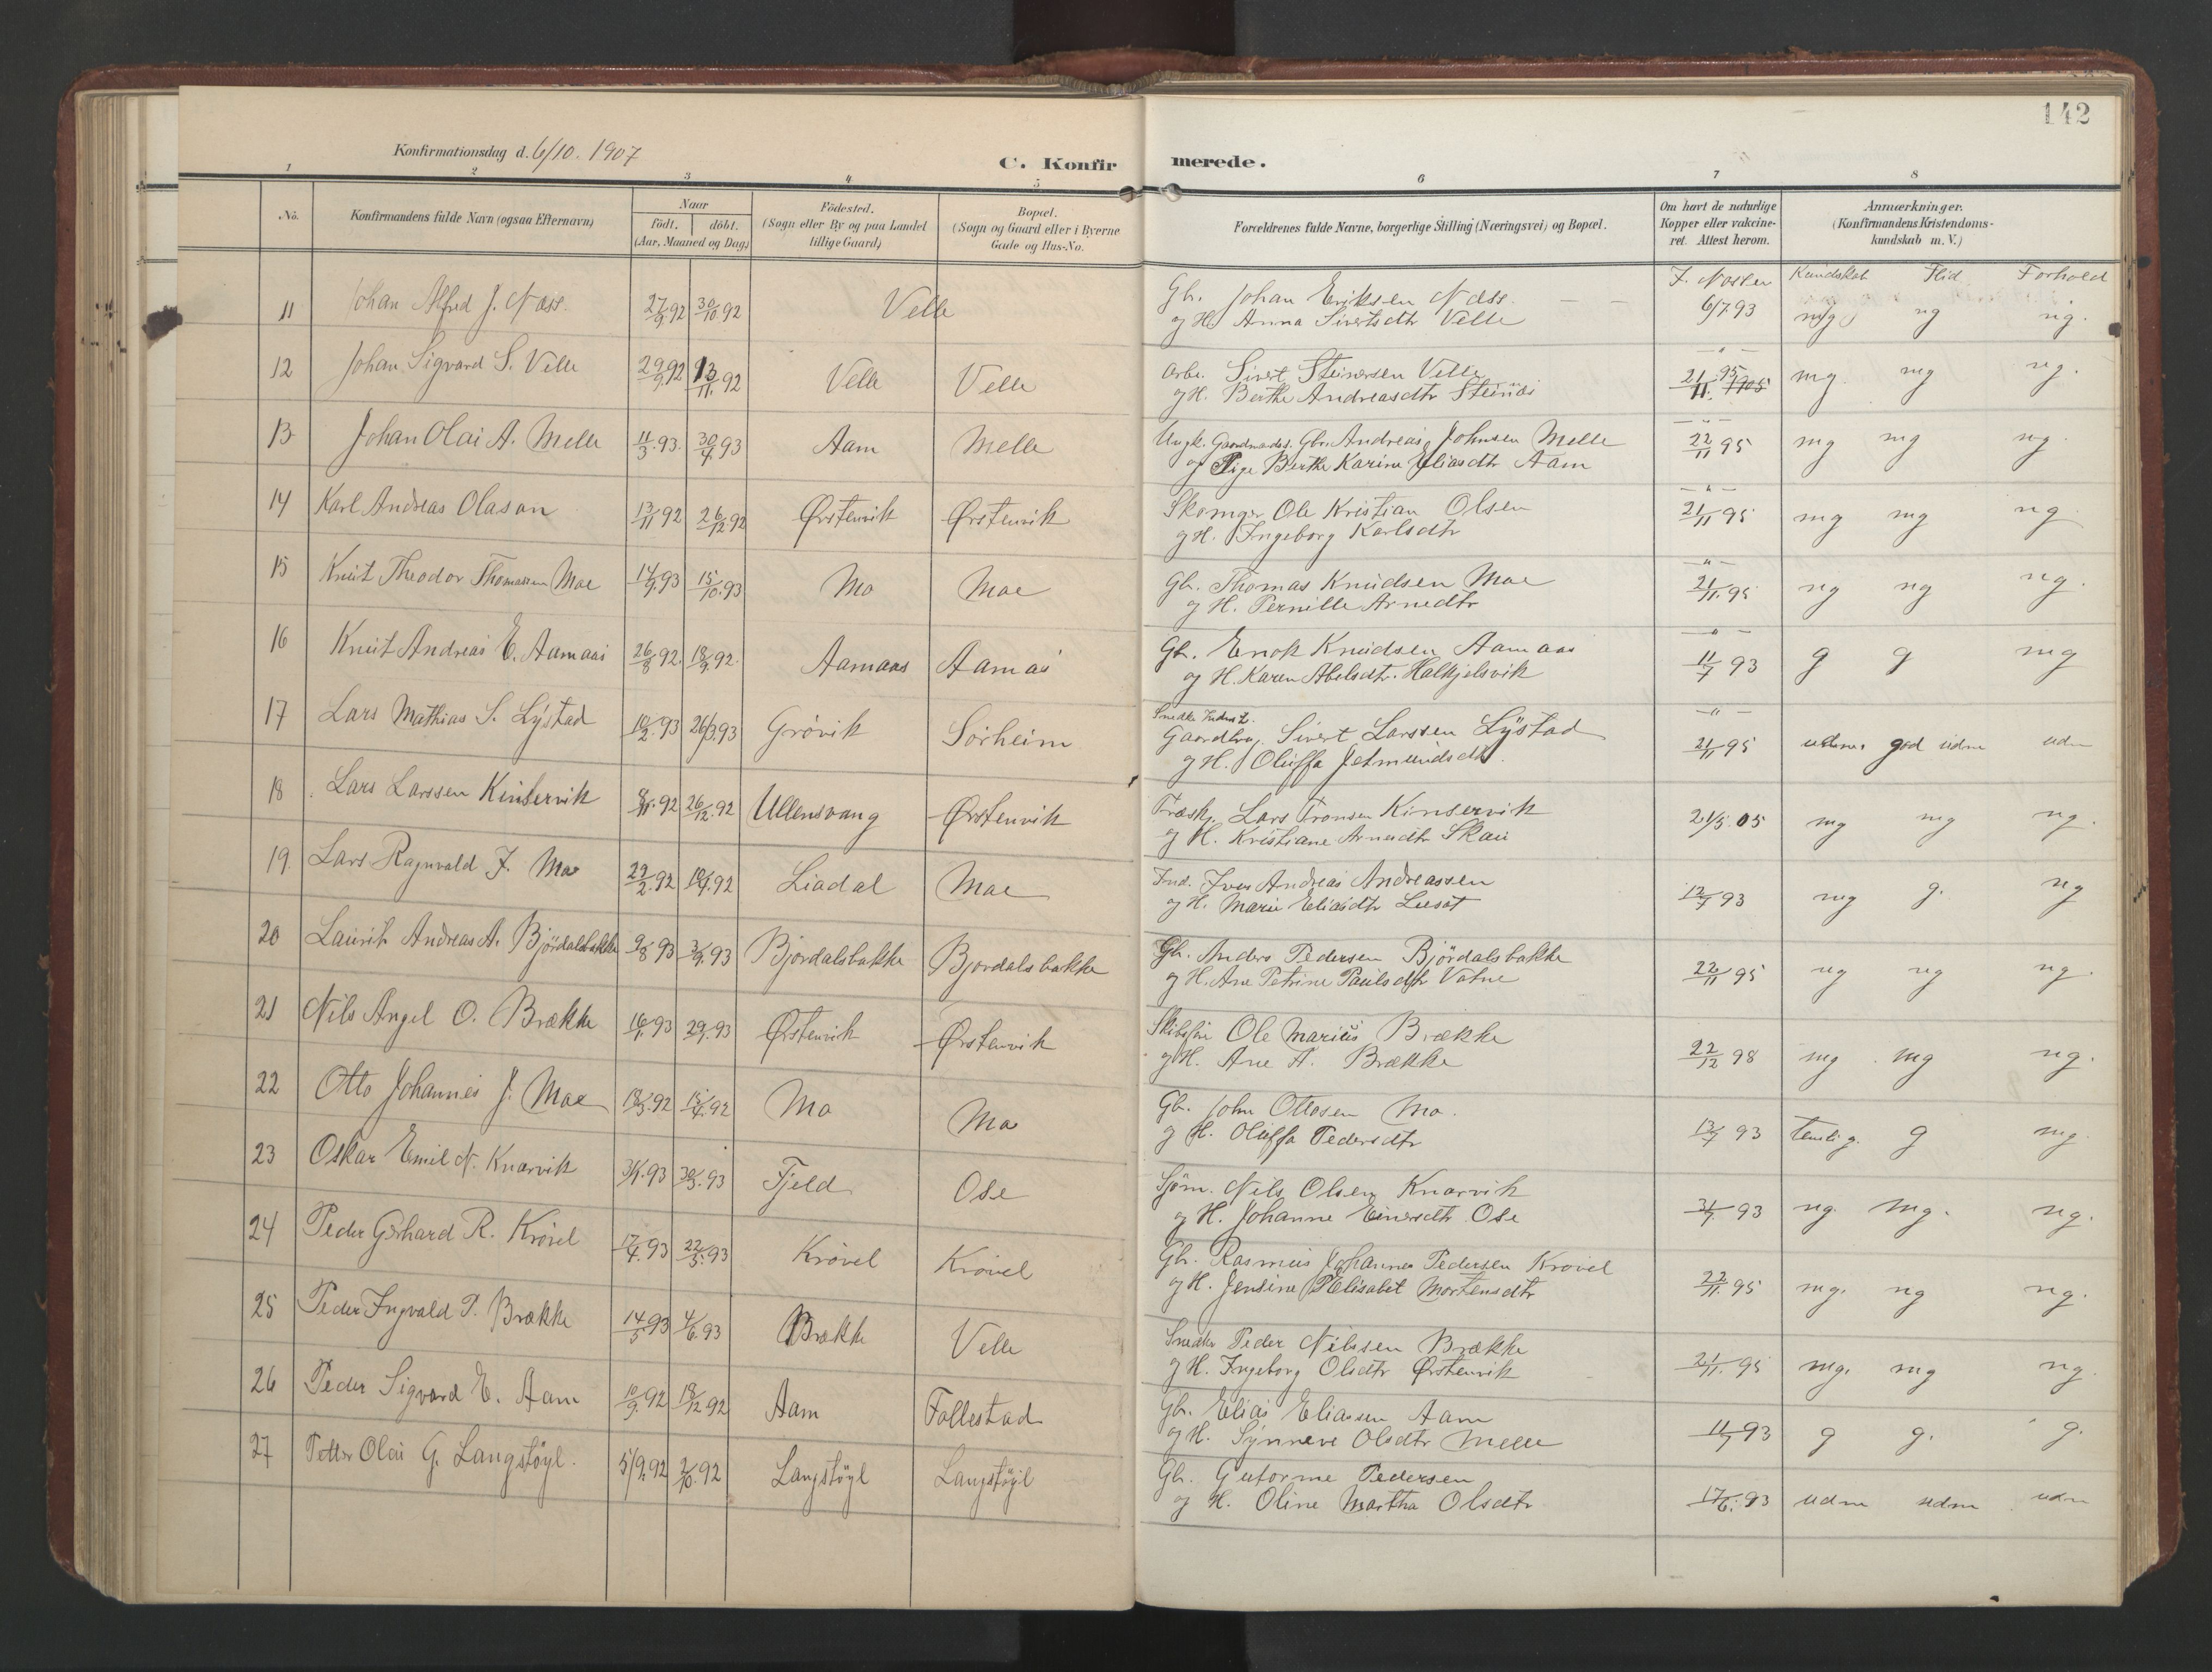 142
Konfirmationsdag d. 6/10. 1907
C. Konfirmerede.
1 2 3 4 5 6 7 8
No.
Konfirmandens fulde Navn (ogsaa Efternavn)
Naar
födt. döbt.
(Aar, Maaned og Dag)
Födested.
(Sogn eller By og paa Landet
tillige Gaard)
Bopæl.
(Sogn og Gaard eller i Byerne
Gade og Hus-No.
Forældrenes fulde Navne, borgerlige Stilling (Næringsvei) og Bopæl.
Om havt de naturlige
Kopper eller vakcine-
ret. Attest herom.
Anmærkninger.
(Konfirmandens Kristendoms-
kundskab m. V.)
Kundskab Flid Forhold
11 Johan Alfred J. Nøss. 27/9 92 30/10. 92 Velle Gbr. Johan Eriksen Nøss. — —
og H. Anna Sivertsdtr Velle 6/7. 93 mg ng ng.
12 Johan Sigvard S. Velle 29/9 92 13/11. 92 Velle Velle Arbr. Sivert Steinarsen Velle
og H. Berthe Andreasdtr Steinæs 21/11. 95 mg. mg ng.
13 Johan Olai A. Melle 11/3. 93. 30/4 93 Aam Melle Ungk. Gaardmands. Gbr. Andreas Johnsen Melle
og Pige Berthe Karine Eliasdtr Aam 22/11 95 mg mg ng.
14 Karl Andreas Olason 13/11 92 26/12 92 Ørstenvik Ørstenvik Skomger Ole Kristian Olsen
og H. Ingeborg Karlsdtr 21/11 95 mg mg ng
15 Knut Theodor Thomassen Moe 14/9. 93 15/10. 93 Mo Moe Gbr. Thomas Knudsen Moe
og H. Pernille Arnedtr 21/11. 95 ng ng ng.
16 Knut Andreas E. Aamaas 26/8 92. 18/9 92. Aamaas Aamås Gbr. Enok Knudsen Aamaas
og H. Karen Abelsdtr. Halkjelsvik 11/7 93 g g mg
17 Lars Mathias S. Lystad 10/2. 93 26/3. 93 Grøvik Sørheim Snedker
Gaardbrg. Sivert Larssen Lystad
og H. Oluffa Jetmundsdtr. 21/11 95 udm. god udm udm
18 Lars Larssen Kinservik 8/11. 92 26/12. 92 Ullensvang Ørstenvik Træskj. Lars Tronsen Kinservik
og H. Kristiane Arnedtr Skau 21/5. 05 mg mg ng.
19 Lars Ragnvald I. Moe 29/2. 92 18/4. 92 Liadal Moe Ind. Iver Andreas Andreassen
og H. Marie Eliasdtr 12/7 93 mg g. ng
20 Laurits Andreas A. Bjørdalsbakke 2/8 93 3/9. 93 Bjørdalsbakke Bjørdalsbakke Gbr. Anders Pedersen Bjørdalsbakke
og H. Ane Petrine Paulsdtr Vatne 22/11 95 ng ng ng.
21 Nils Angel O. Brække 16/1. 93 29/1. 93 Ørstenvik Ørstenvik Ole Marius Brække
og H. Ane A. Brække 22/12 98 mg mg ng.
22 Otto Johannes J. Moe 18/3. 92 15/4. 92 Mo Mo Gbr. John Ottosen Mo.
og H. Oluffa Pedersdtr 13/7 93 temlig. g mg.
23 Oskar Emil N. Knarvik 31/1. 93 30/3. 93 Fjeld Ose Sjøm. Nils Olsen Knarvik
og H. Johanne Einarsdtr Ose 31/7. 93 ng. mg. ng.
24 Peder Gerhard R. Krøvel 17/4. 93 22/5. 93 Krøvel Krøvel Gbr. Rasmus Johannes Pedersen Krøvel
og H. Jensine Elisabet Mortensdtr 22/11. 95 mg. ng ng.
25 Peder Ingvald P. Brække 14/5. 93 4/6 93 Brække Velle Snedker Peder Nilssen Brække
og H. Ingeborg Olsdtr Ørstenvik 21/11. 95 mg. mg ng.
26 Peder Sigvard E. Aam 10/9. 92 18/12 92 Aam Follestad Gbr. Elias Eliassen Aam
og H. Synneve Olsdtr Melle 11/7 93 g g. g.
27 Petter Olai G. Langstøyl. 5/9. 92 2/10. 92 Langstøyl Langstøyl Gbr. Gutorme Pedersen
og H. Oline Martha Olsdtr 17/6. 93 udm udm udm